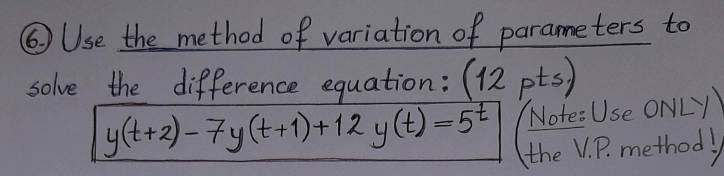 6. Use the method of variation of parameters to
solve the difference equation: (12 pts.)
y(t+2) - 7y(t+1) + 12 y(t) = 5^t (Note: Use ONLY
the V.P. method!)